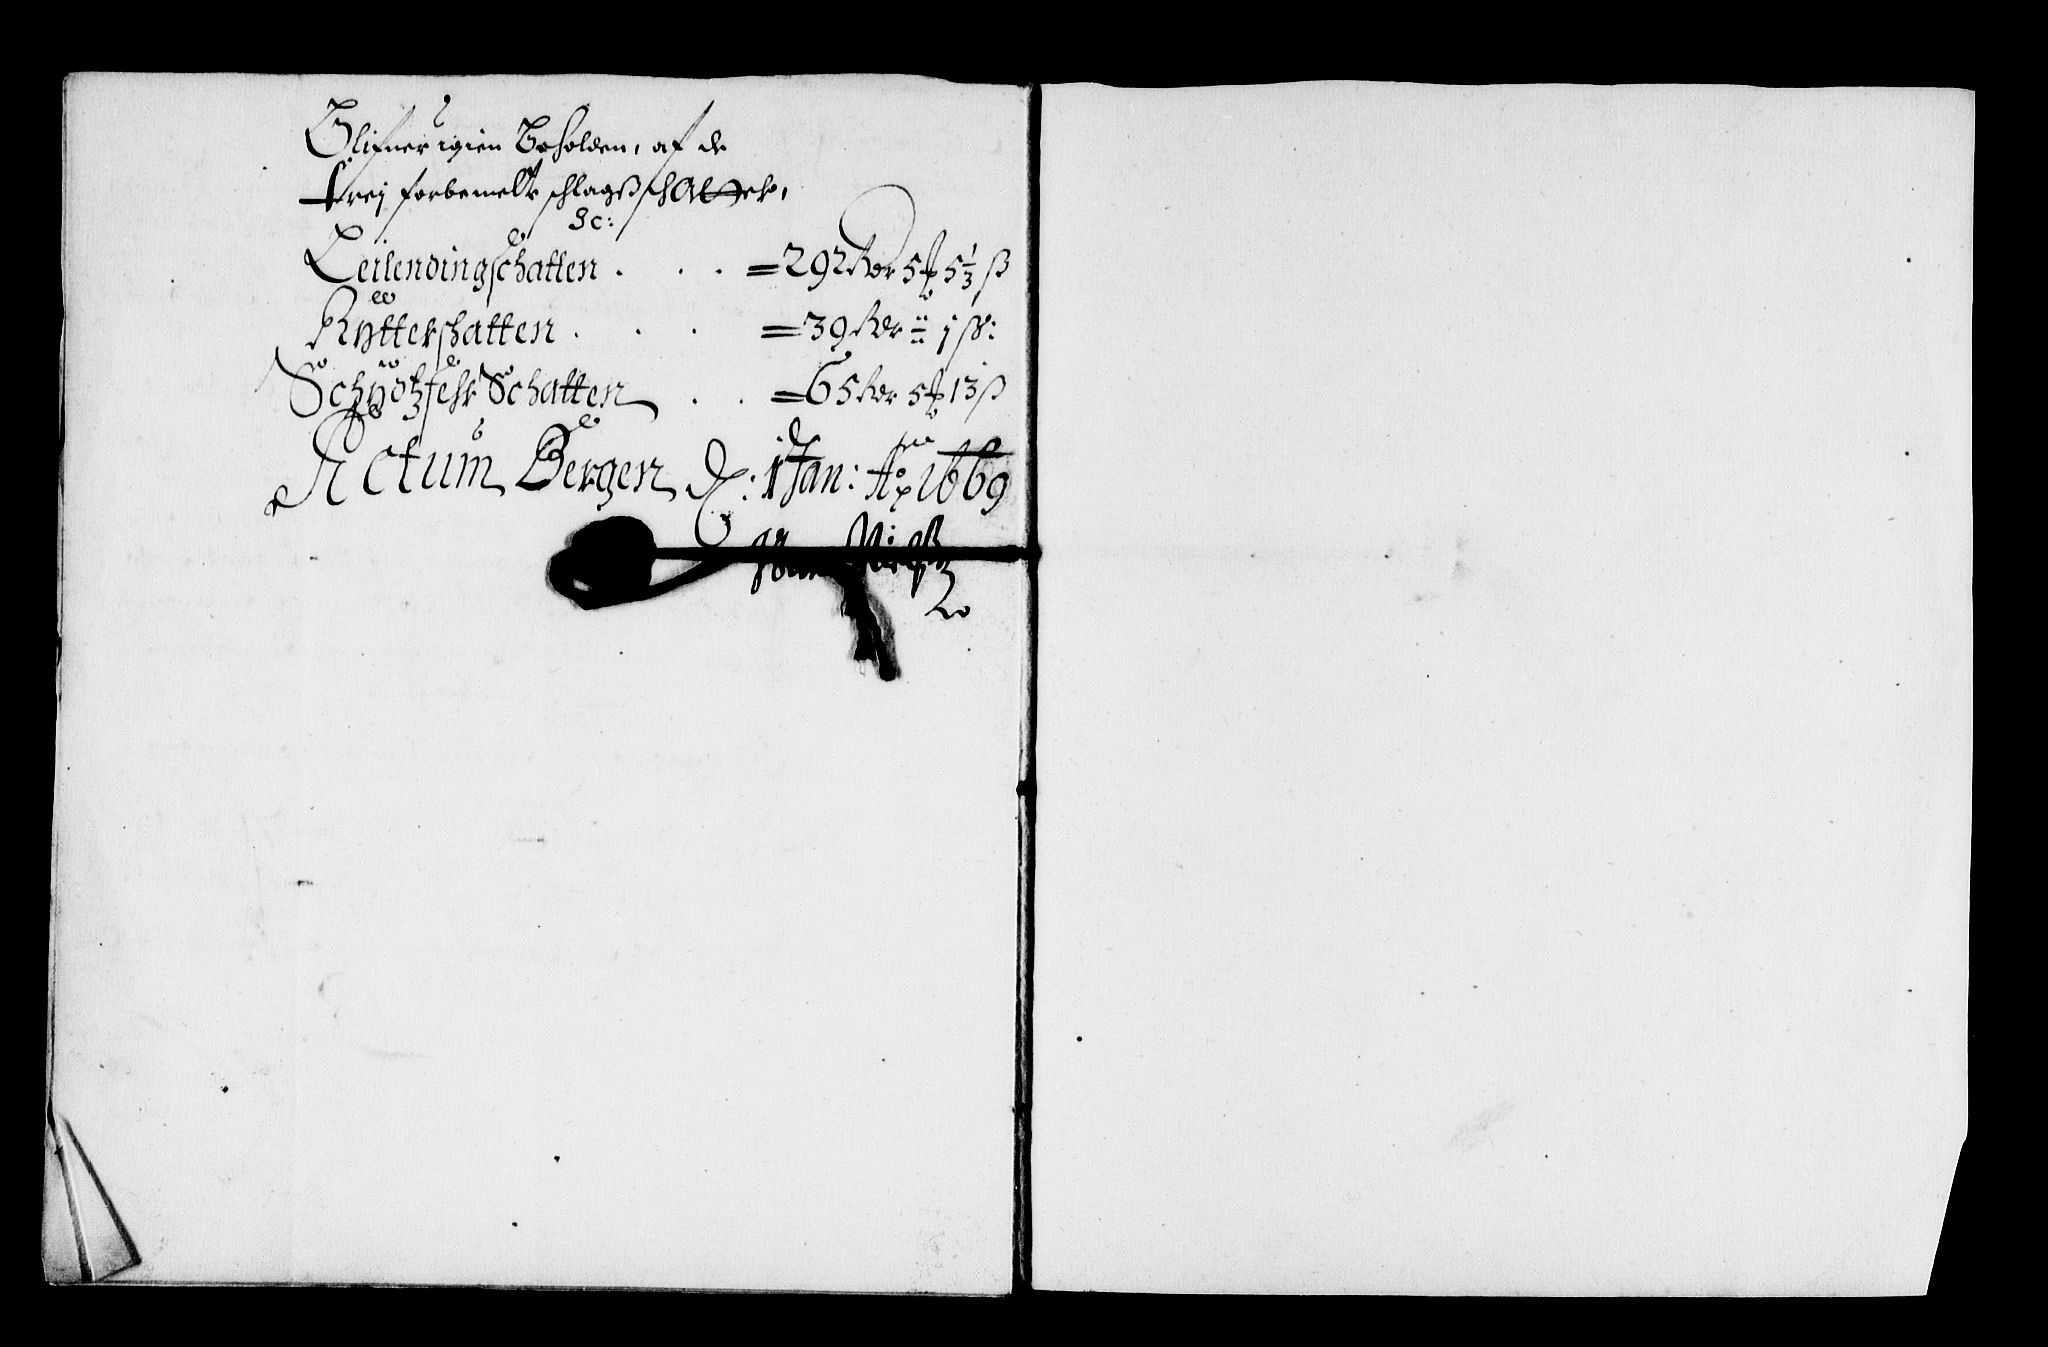 Blifuer igien Beholden, af de
trej forbemelte schlagß schatter,
&c:
Leilendingschatten . . . = 292 Rdr 5 ℔ 5 1/3 ß
Rytterschatten . . . = 39 Rdr " 1 ß:
Schydtzferschatten . . = 65 Rdr 5 ℔ 13 ß
Actum Bergen d: 1 Jan: Ao 1669